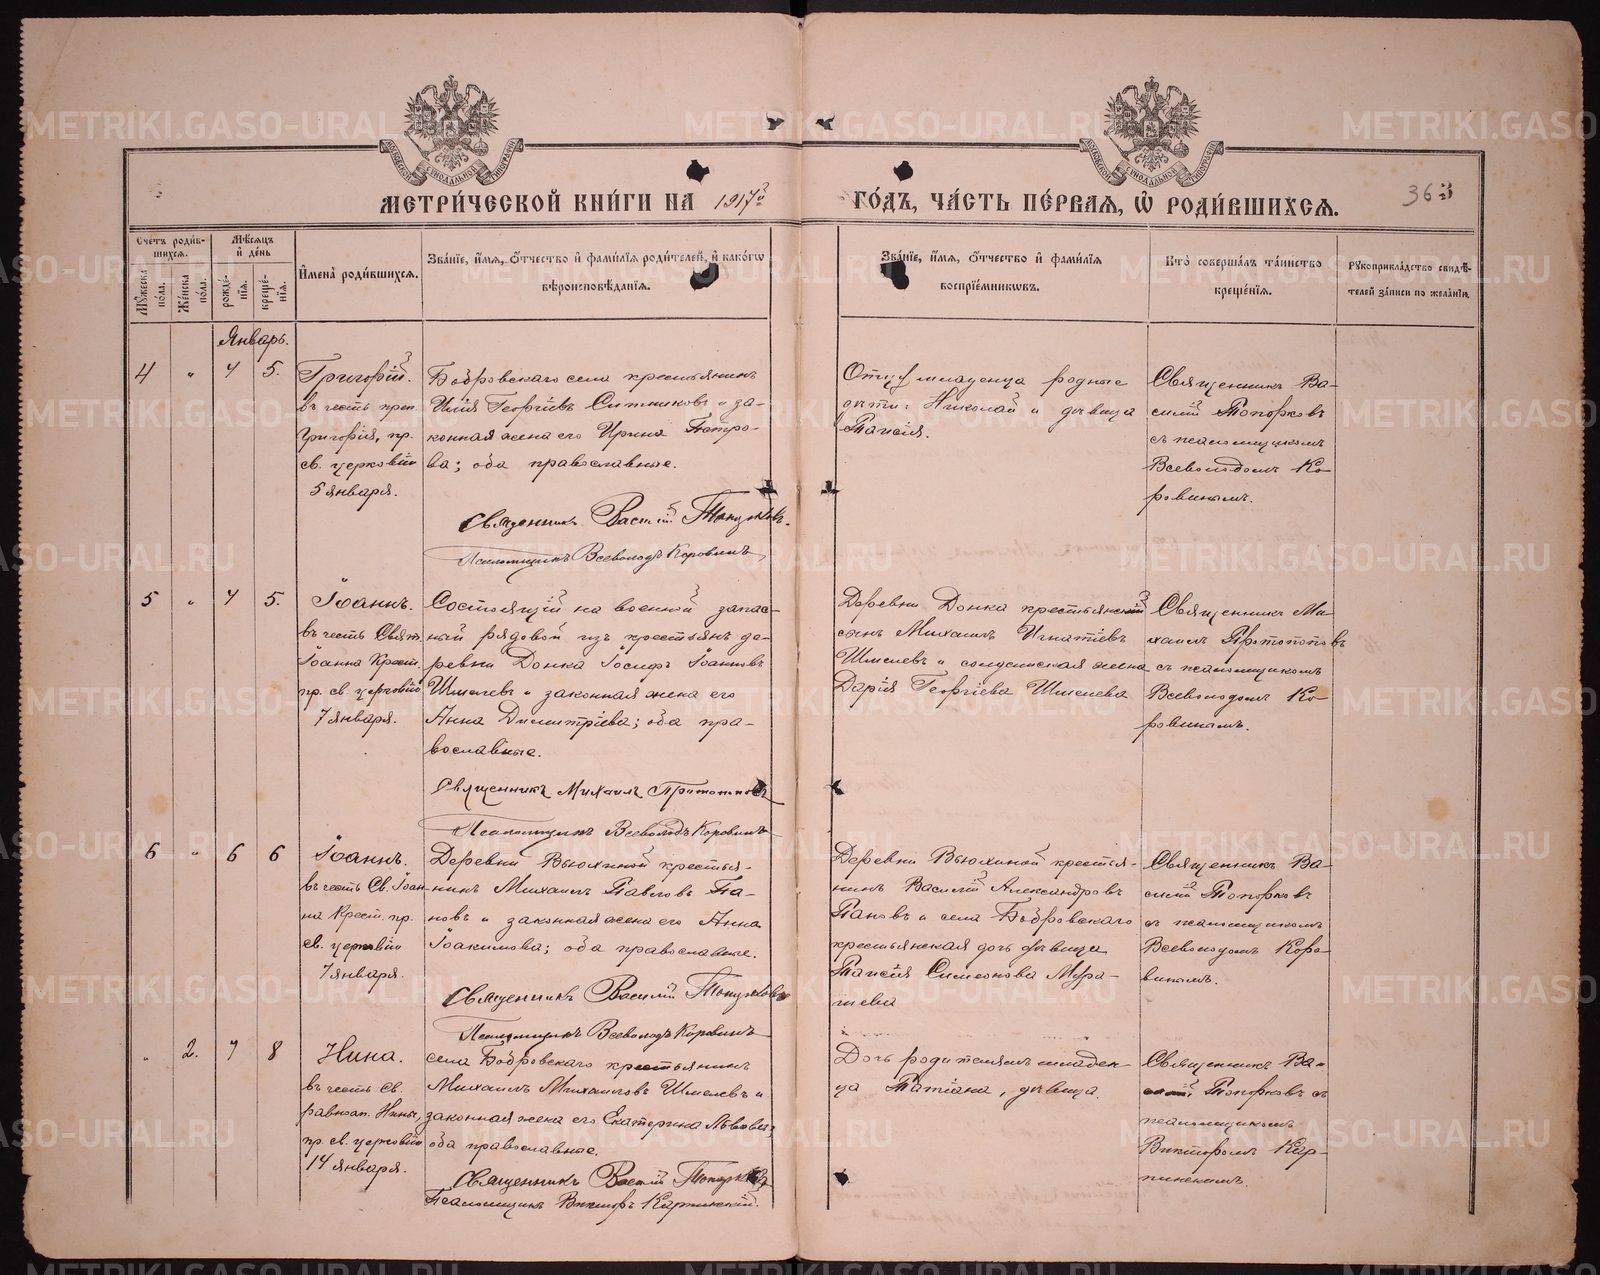 МЕТРИ́ЧЕСКОЙ КНИ́ГИ НА 1917й ГО́ДЪ, ЧА́СТЬ ПЕ́РВАѦ, Ѡ҆ РОДИ́ВШИХСѦ.
363
Счетъ роди́вшихсѧ.
Мꙋжеска по́ла.
Же́нска по́ла.
Мѣ́сѧцъ и҆ де́нь
рожде́нїѧ.
креще́нїѧ.
И҆мена̀ роди́вшихсѧ.
Зва́нїе, и҆́мѧ, ѻ҆́тчество и҆ фами́лїѧ роди́телей, и҆ како́гѡ
вѣроисповѣ́данїѧ.
Зва́нїе, и҆́мѧ, ѻ҆́тчество и҆ фами́лїѧ
воспрїе́мникѡвъ.
Кто̀ соверша́лъ та́инство
креще́нїѧ.
Рꙋкоприкла́дство свидѣ́
телей за́писи по жела́нїю.
Январь.
4 " 4 5.
Григорій.
въ честь преп.
Григорія, пр.
св. церковію
5 января.
Бобровскаго села крестьянинъ
Илія Георгіевъ Ситниковъ и за-
конная жена его Ирина Петро-
ва; оба православные.
Священникъ Василій Топорковъ.
Псаломщикъ Всеволодъ Коровинъ
младенца родные
дѣти: Николай и дѣвица
Таисія.
Священникъ Ва-
силій Топорковъ
съ псаломщикомъ
Всеволодомъ Ко-
ровинымъ.
5 " 4 5.
Іоаннъ.
въ честь Свят.
Іоанна Крест.
пр. св. церковію
7 января.
Состоящій на военной запас-
ный рядовой изъ крестьянъ де-
ревни Донка Іосифъ Іоанновъ
Шмелевъ и законная жена его
Анна Димитріева; оба пра-
вославные.
Священникъ Михаилъ Протопоповъ
Псаломщикъ Всеволодъ Коровинъ
Деревни Донка крестьянскій
сынъ Михаилъ Игнатіевъ
Шмелевъ и солдатская жена
Дарія Георгіева Шмелева
Священникъ Ми-
хаилъ Протопоповъ
съ псаломщикомъ
Всеволодомъ Ко-
ровинымъ.
6 " 6 6
Іоаннъ.
въ честь Св. Іоан-
на Крест. пр.
св. церковію
7 января.
Деревни Вьюхиной крестья-
нинъ Михаилъ Павловъ Па-
новъ и законная жена его Анна
Іоакимова; оба православные.
Священникъ Василій Топорковъ
Псаломщикъ Всеволодъ Коровинъ
Деревни Вьюхиной крестья-
нинъ Василій Александровъ
Пановъ и села Бобровскаго
крестьянская дочь дѣвица
Таисія Симеонова
Священникъ Ва-
силій Топорковъ
съ псаломщикомъ
Всеволодомъ Коро-
винымъ.
" 2. 7 8
Нина.
въ честь Св.
равноап. Нины,
пр. св. церковію
14 января.
села Бобровскаго крестьянинъ
Михаилъ Михаиловъ Шмелевъ и
законная жена его Екатерина Львова;
оба православные.
Священникъ Василій Топорковъ
Псаломщикъ Викторъ Карпинскій.
Дочь родителямъ младен-
ца Татіана, дѣвица.
Священникъ Ва-
силій Топорковъ съ
псаломщикомъ
Викторомъ Кар-
пинскимъ.
METRIKI.GASO-URAL.RU